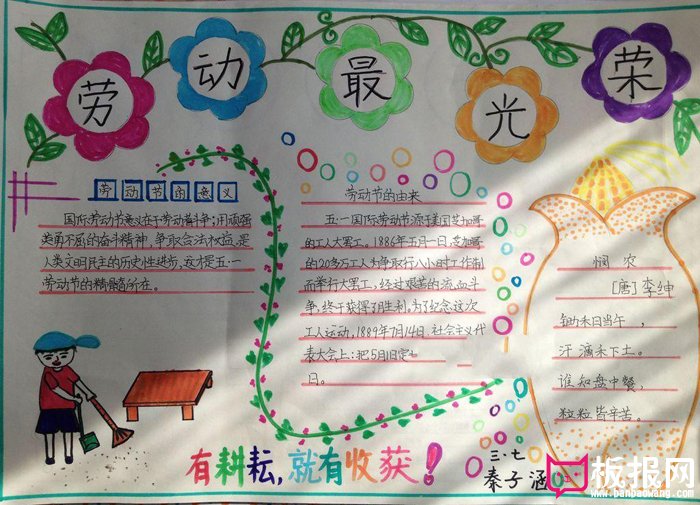 劳动最光荣
劳动节的意义
国际劳动节意义在于劳动者斗争:用顽强
英勇不屈的奋斗精神,争取合法权益,是
人类文明民主的历史性进步,这才是五·一
劳动节的精髓所在。
劳动节的由来
五·一国际劳动节源于美国芝加哥
的工人大罢工。1886年五月一日,芝加哥
的20多万工人为争取行八小时工作制
而举行大罢工,经过艰苦的流血斗
争,终于获得了胜利。为了纪念这次
工人运动,1889年7月14日,社会主义代
表大会上:把5月1日定
日。
悯农
[唐]李绅
锄禾日当午,
汗滴禾下土。
谁知盘中餐,
粒粒皆辛苦。
有耕耘,就有收获!
三·七
秦子涵
板报网
www.banbaowang.com